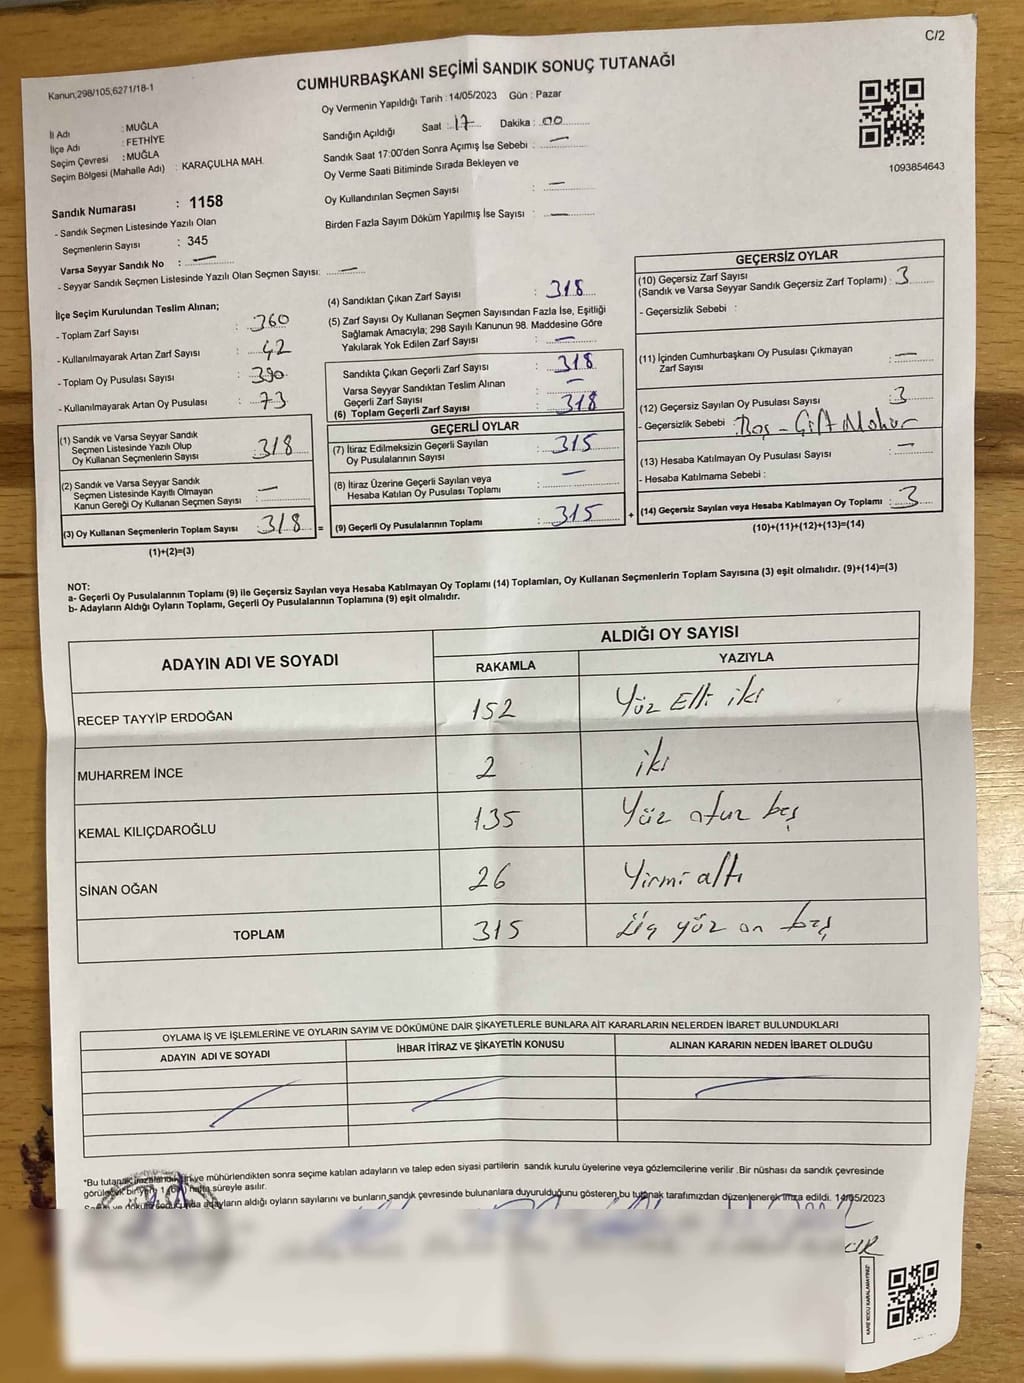 C/2
Kanun;298/105,6271/18-1
CUMHURBAŞKANI SEÇİMİ SANDIK SONUÇ TUTANAĞI
Oy Vermenin Yapıldığı Tarih : 14/05/2023 Gün : Pazar
İl Adı : MUĞLA
İlçe Adı : FETHİYE
Seçim Çevresi : MUĞLA
Seçim Bölgesi (Mahalle Adı) : KARAÇULHA MAH.
Sandık Numarası : 1158
- Sandık Seçmen Listesinde Yazılı Olan
Seçmenlerin Sayısı : 345
Varsa Seyyar Sandık No : —
- Seyyar Sandık Seçmen Listesinde Yazılı Olan Seçmen Sayısı: —
Sandığın Açıldığı Saat : 17 Dakika : 00
Sandık Saat 17:00'den Sonra Açımış İse Sebebi : —
Oy Verme Saati Bitiminde Sırada Bekleyen ve
Oy Kullandırılan Seçmen Sayısı : —
Birden Fazla Sayım Döküm Yapılmış İse Sayısı : —
1093854643
İlçe Seçim Kurulundan Teslim Alınan;
- Toplam Zarf Sayısı : 360
- Kullanılmayarak Artan Zarf Sayısı : 42
- Toplam Oy Pusulası Sayısı : 390
- Kullanılmayarak Artan Oy Pusulası : 73
(1) Sandık ve Varsa Seyyar Sandık
Seçmen Listesinde Yazılı Olup
Oy Kullanan Seçmenlerin Sayısı : 318
(2) Sandık ve Varsa Seyyar Sandık
Seçmen Listesinde Kayıtlı Olmayan
Kanun Gereği Oy Kullanan Seçmen Sayısı : —
(3) Oy Kullanan Seçmenlerin Toplam Sayısı : 318 =
(1)+(2)=(3)
(4) Sandıktan Çıkan Zarf Sayısı : 318
(5) Zarf Sayısı Oy Kullanan Seçmen Sayısından Fazla İse, Eşitliği
Sağlamak Amacıyla; 298 Sayılı Kanunun 98. Maddesine Göre
Yakılarak Yok Edilen Zarf Sayısı : —
Sandıkta Çıkan Geçerli Zarf Sayısı : 318
Varsa Seyyar Sandıktan Teslim Alınan
Geçerli Zarf Sayısı : —
(6) Toplam Geçerli Zarf Sayısı : 318
GEÇERLİ OYLAR
(7) İtiraz Edilmeksizin Geçerli Sayılan
Oy Pusulalarının Sayısı : 315
(8) İtiraz Üzerine Geçerli Sayılan veya
Hesaba Katılan Oy Pusulası Toplamı : —
(9) Geçerli Oy Pusulalarının Toplamı : 315 +
GEÇERSİZ OYLAR
(10) Geçersiz Zarf Sayısı
(Sandık ve Varsa Seyyar Sandık Geçersiz Zarf Toplamı) : 3
- Geçersizlik Sebebi :
(11) İçinden Cumhurbaşkanı Oy Pusulası Çıkmayan
Zarf Sayısı : —
(12) Geçersiz Sayılan Oy Pusulası Sayısı : 3
- Geçersizlik Sebebi : Boş - Çift Mühür
(13) Hesaba Katılmayan Oy Pusulası Sayısı : —
- Hesaba Katılmama Sebebi :
(14) Geçersiz Sayılan veya Hesaba Katılmayan Oy Toplamı : 3
(10)+(11)+(12)+(13)=(14)
NOT:
a- Geçerli Oy Pusulalarının Toplamı (9) ile Geçersiz Sayılan veya Hesaba Katılmayan Oy Toplamı (14) Toplamları, Oy Kullanan Seçmenlerin Toplam Sayısına (3) eşit olmalıdır. (9)+(14)=(3)
b- Adayların Aldığı Oyların Toplamı, Geçerli Oy Pusulalarının Toplamına (9) eşit olmalıdır.
ADAYIN ADI VE SOYADI ALDIĞI OY SAYISI
RAKAMLA YAZIYLA
RECEP TAYYİP ERDOĞAN 152 Yüz Elli iki
MUHARREM İNCE 2 iki
KEMAL KILIÇDAROĞLU 135 Yüz otuz beş
SİNAN OĞAN 26 Yirmi altı
TOPLAM 315 Üç yüz on beş
OYLAMA İŞ VE İŞLEMLERİNE VE OYLARIN SAYIM VE DÖKÜMÜNE DAİR ŞİKAYETLERLE BUNLARA AİT KARARLARIN NELERDEN İBARET BULUNDUKLARI
ADAYIN ADI VE SOYADI İHBAR İTİRAZ VE ŞİKAYETİN KONUSU ALINAN KARARIN NEDEN İBARET OLDUĞU
*Bu tutanak mühürlendikten sonra seçime katılan adayların ve talep eden siyasi partilerin sandık kurulu üyelerine veya gözlemcilerine verilir .Bir nüshası da sandık çevresinde
görülecek bir yere hafta süreyle asılır.
adayların aldığı oyların sayılarını ve bunların sandık çevresinde bulunanlara duyurulduğunu gösteren bu tutanak tarafımızdan düzenlenerek imza edildi. 14/05/2023
KARE KODU KARALAMAYINIZ!